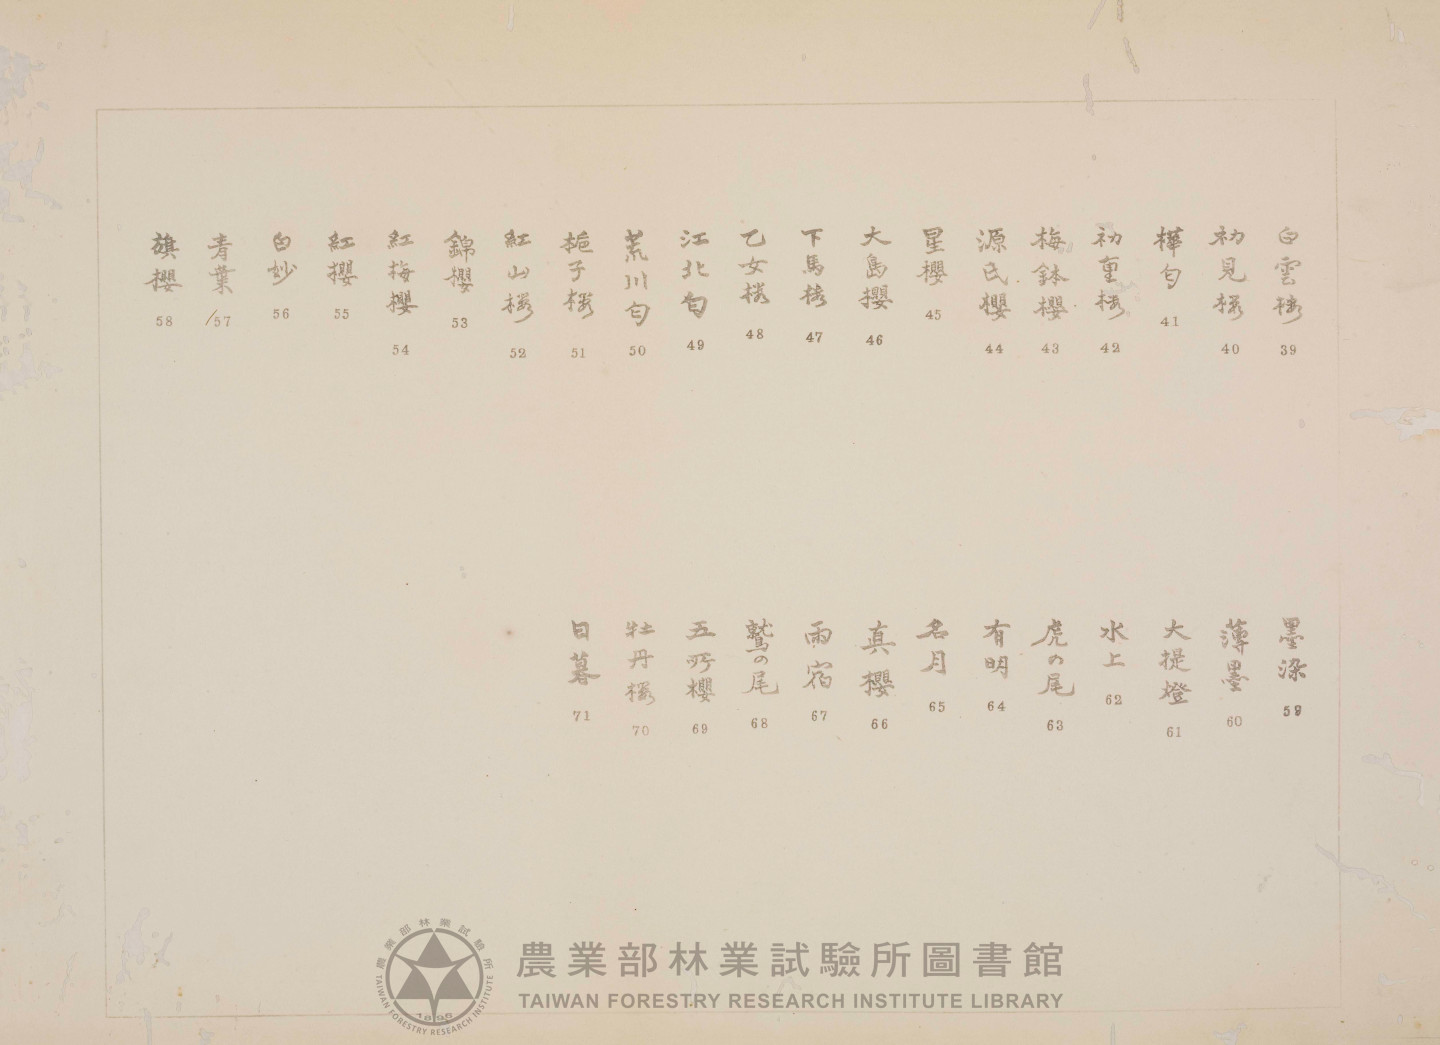 白雲櫻 39
初見櫻 40
樺匂 41
初重櫻 42
梅鉢櫻 43
源氏櫻 44
星櫻 45
大島櫻 46
下馬櫻 47
乙女櫻 48
江北匂 49
荒川匂 50
梔子櫻 51
紅山櫻 52
錦櫻 53
紅梅櫻 54
紅櫻 55
白妙 56
青葉 57
旗櫻 58
墨染 59
薄墨 60
大提燈 61
水上 62
虎の尾 63
有明 64
名月 65
真櫻 66
雨宿 67
鷲の尾 68
五所櫻 69
牡丹櫻 70
日暮 71
農業部林業試驗所
TAIWAN FORESTRY RESEARCH INSTITUTE
1895
農業部林業試驗所圖書館
TAIWAN FORESTRY RESEARCH INSTITUTE LIBRARY